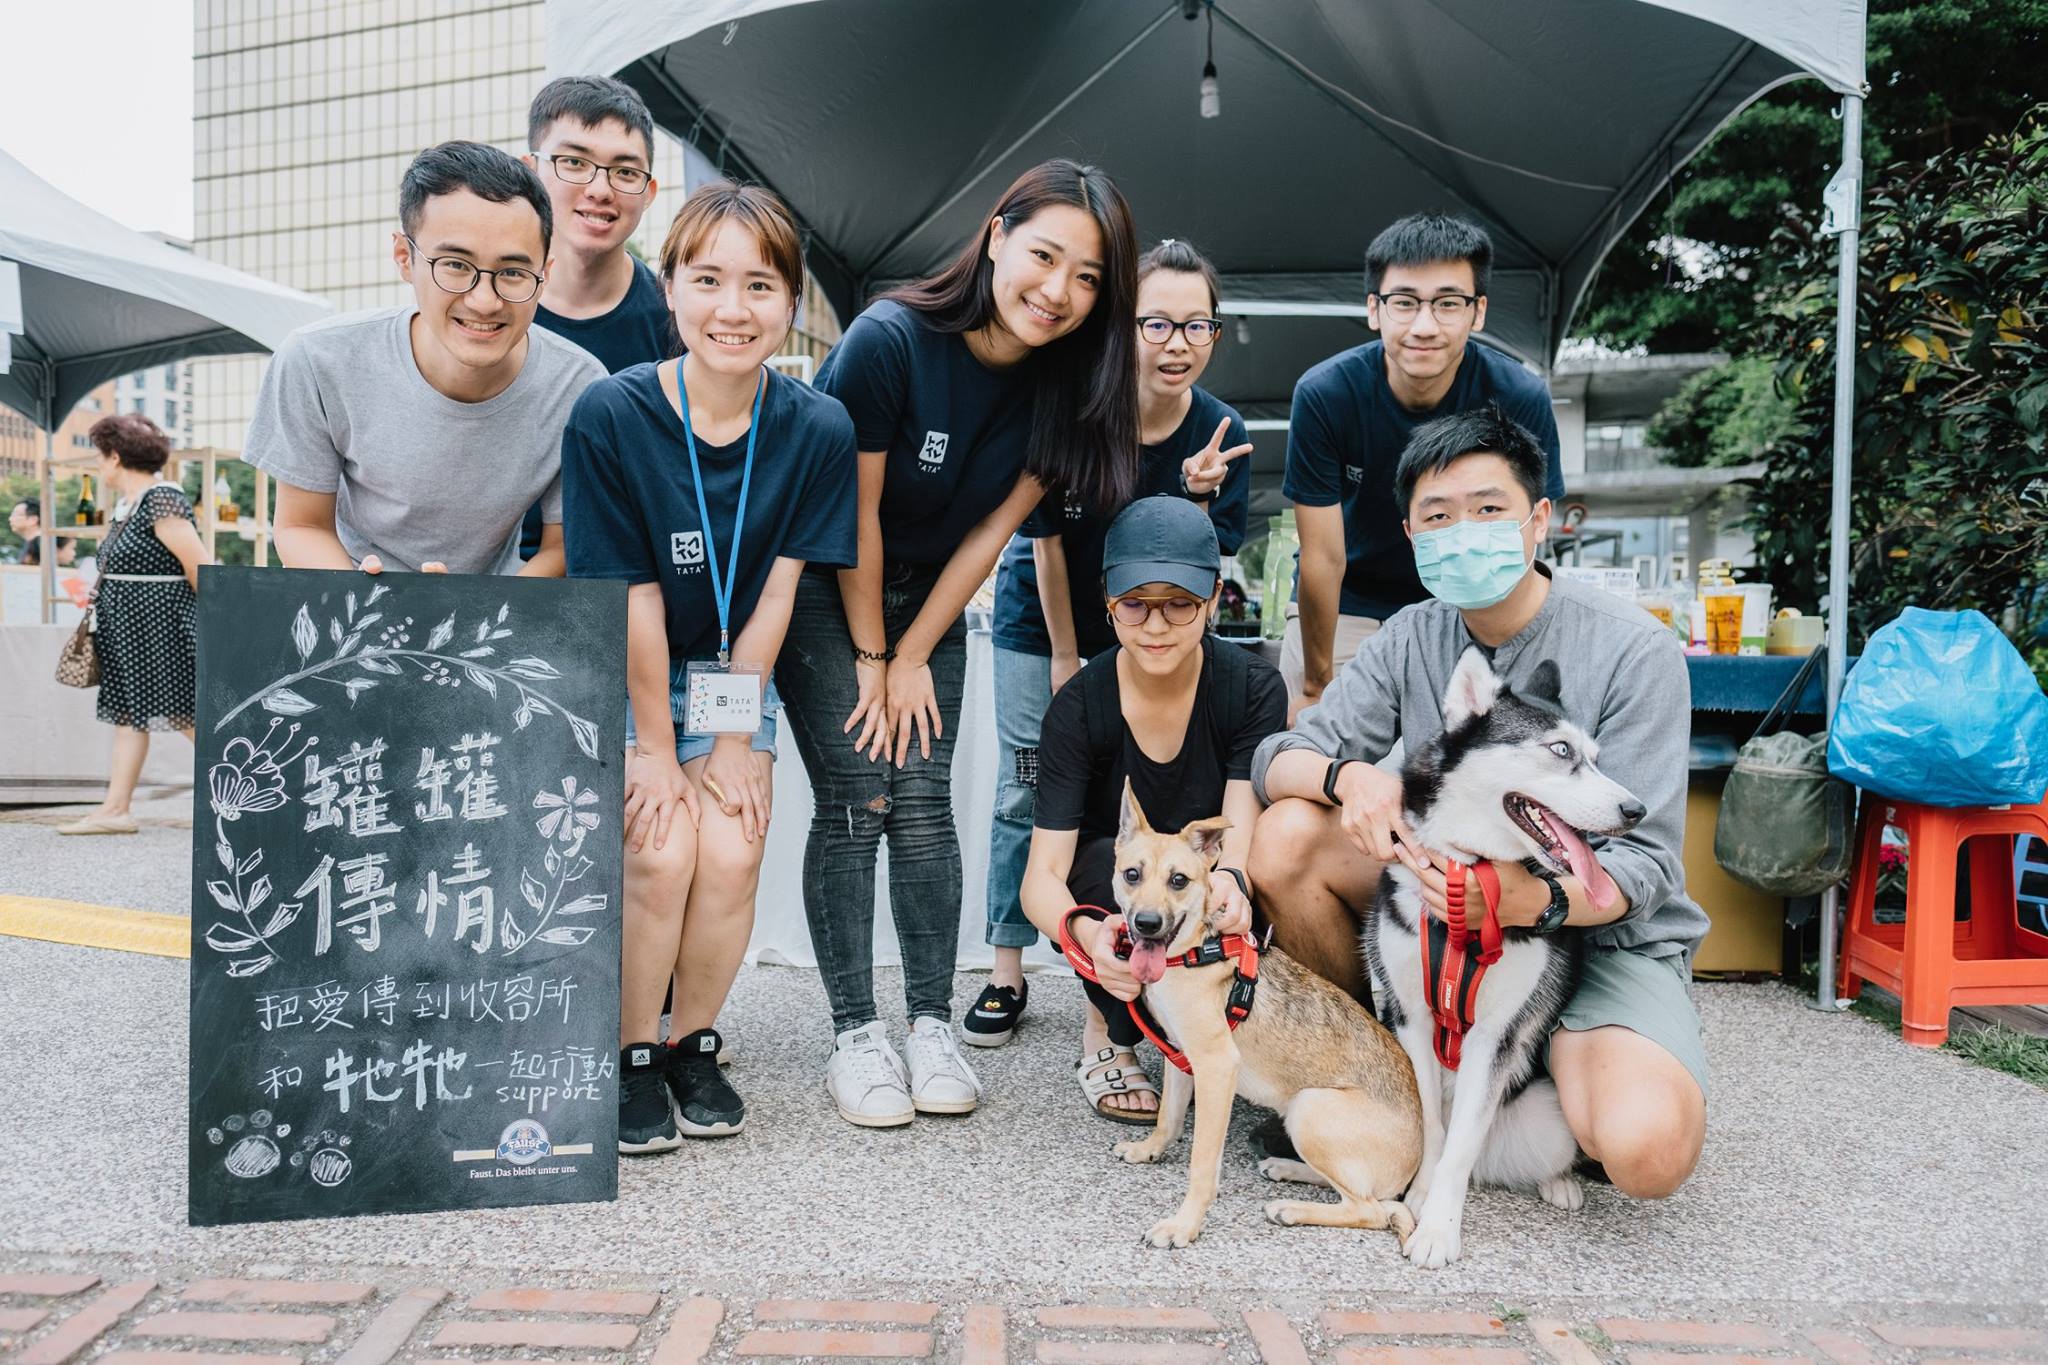 罐罐
傳情
把愛傳到收容所
和 牠牠 一起行動
support
FAUST
Faust. Das bleibt unter uns.
TATA
TATA
TATA